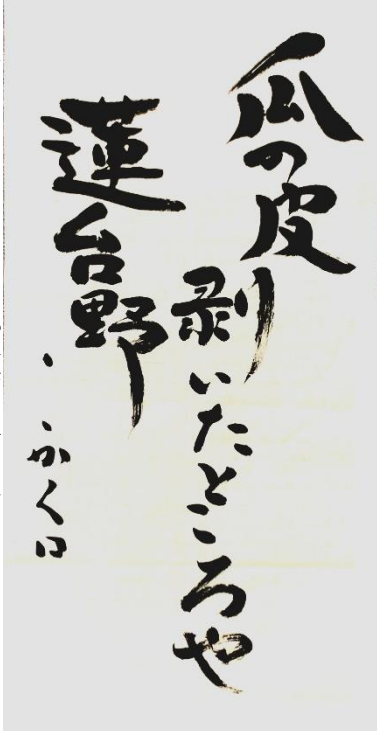 瓜の皮
剥いたところや
蓮台野